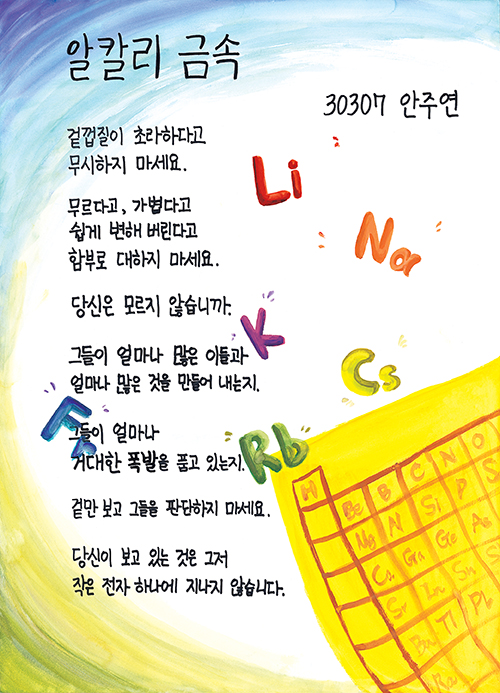 알칼리 금속
30307 안주연
겉껍질이 초라하다고
무시하지 마세요.
무르다고, 가볍다고
쉽게 변해 버린다고
함부로 대하지 마세요.
당신은 모르지 않습니까.
그들이 얼마나 많은 이들과
얼마나 많은 것을 만들어 내는지.
그들이 얼마나
거대한 폭발을 품고 있는지.
겉만 보고 그들을 판단하지 마세요.
당신이 보고 있는 것은 그저
작은 전자 하나에 지나지 않습니다.
Li
Na
K
Cs
Fr
Rb
H
Be B C N O
Mg N Si P S
Ca Ga Ge As
Sr In Sn
Ba Tl Pb
Ra